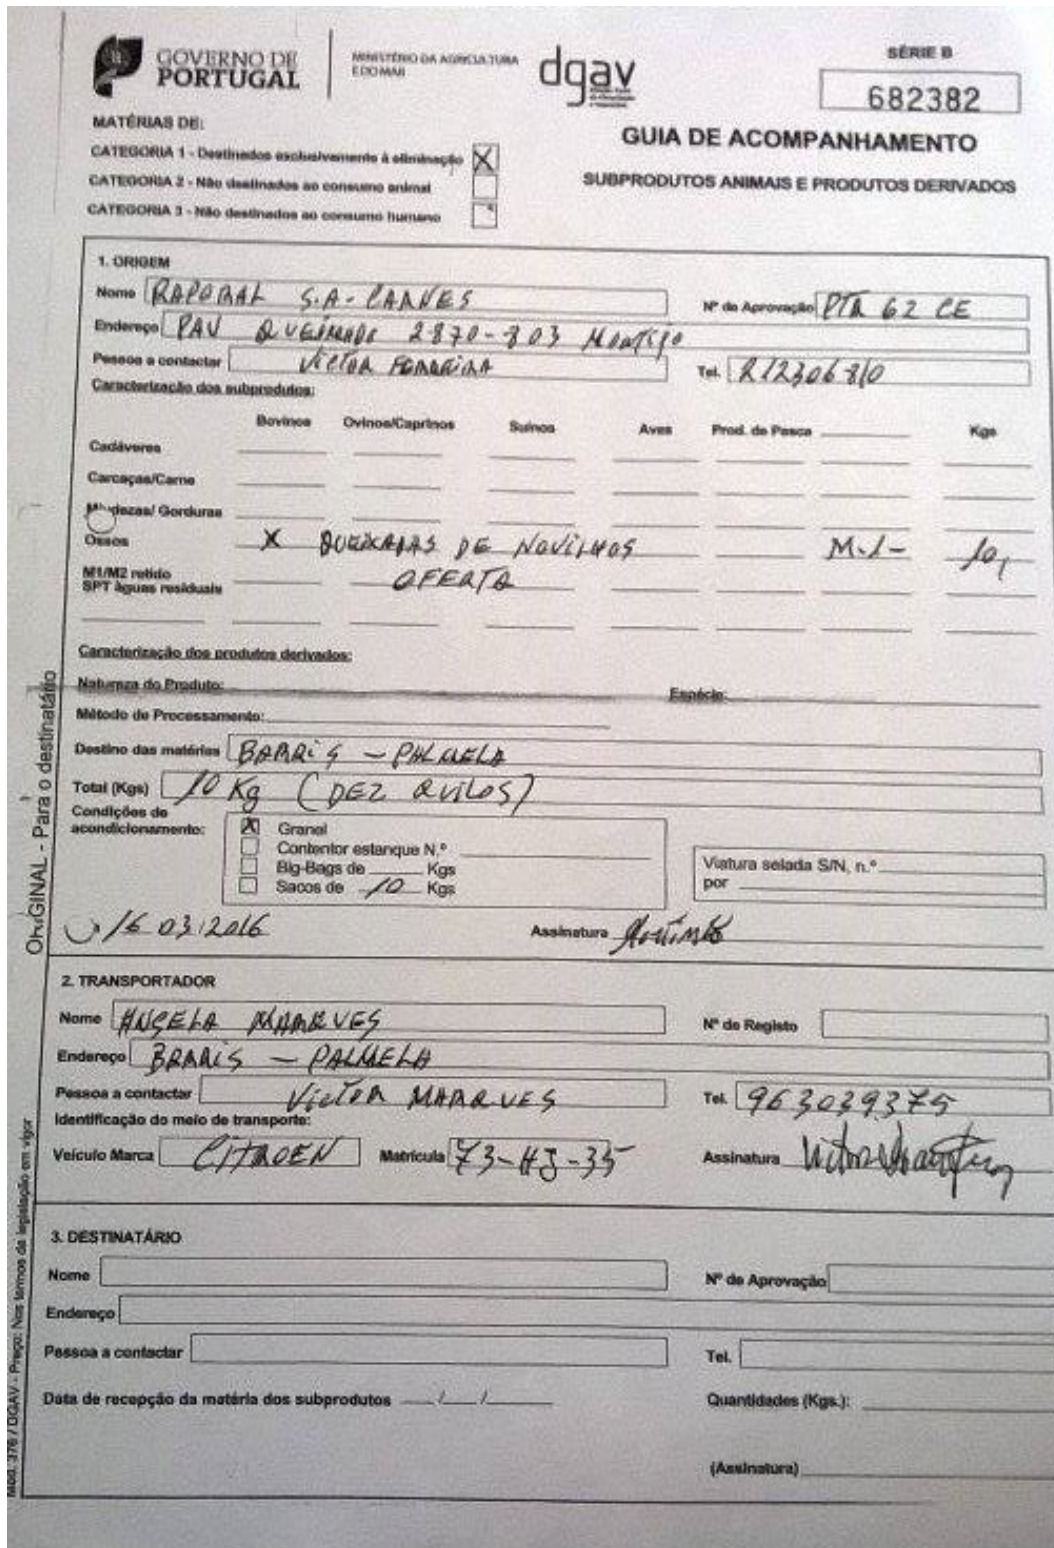 GOVERNO DE
PORTUGAL
MINISTÉRIO DA AGRICULTURA
E DO MAR
dgav
SÉRIE B
682382
MATÉRIAS DE:
GUIA DE ACOMPANHAMENTO
CATEGORIA 1 - Destinados exclusivamente à eliminação X
CATEGORIA 2 - Não destinados ao consumo animal
SUBPRODUTOS ANIMAIS E PRODUTOS DERIVADOS
CATEGORIA 3 - Não destinados ao consumo humano
1. ORIGEM
Nome RAPORAL S.A - CARNES Nº de Aprovação PTA 62 CE
Endereço PAV QUEIMADO 2870-803 Montijo
Pessoa a contactar Victor FERREIRA Tel. 212306810
Caracterização dos subprodutos:
Bovinos Ovinos/Caprinos Suínos Aves Prod. de Pesca Kgs
Cadáveres
Carcaças/Carne
Miudezas/ Gorduras
Ossos X QUEIXADAS DE NOVILHOS M.1- 10,
M1/M2 retido OFERTA
SPT águas residuais
Caracterização dos produtos derivados:
Natureza do Produto: Espécie:
Método de Processamento:
Destino das matérias BARRIS - PALMELA
Total (Kgs) 10 Kg (DEZ QUILOS)
Condições de
acondicionamento: X Granel
Contentor estanque N.º
Big-Bags de Kgs
Sacos de 10 Kgs
Viatura selada S/N, n.º
por
16 03 2016 Assinatura
2. TRANSPORTADOR
Nome ANGELA MARQUES Nº de Registo
Endereço BARRIS - PALMELA
Pessoa a contactar Victor MARQUES Tel. 963039375
Identificação do meio de transporte:
Veículo Marca CITROEN Matrícula 73-HJ-35 Assinatura
3. DESTINATÁRIO
Nome Nº de Aprovação
Endereço
Pessoa a contactar Tel.
Data de recepção da matéria dos subprodutos / / Quantidades (Kgs.):
(Assinatura)
ORIGINAL - Para o destinatário
Mod. 376 / DGAV - Preço: Nos termos da legislação em vigor